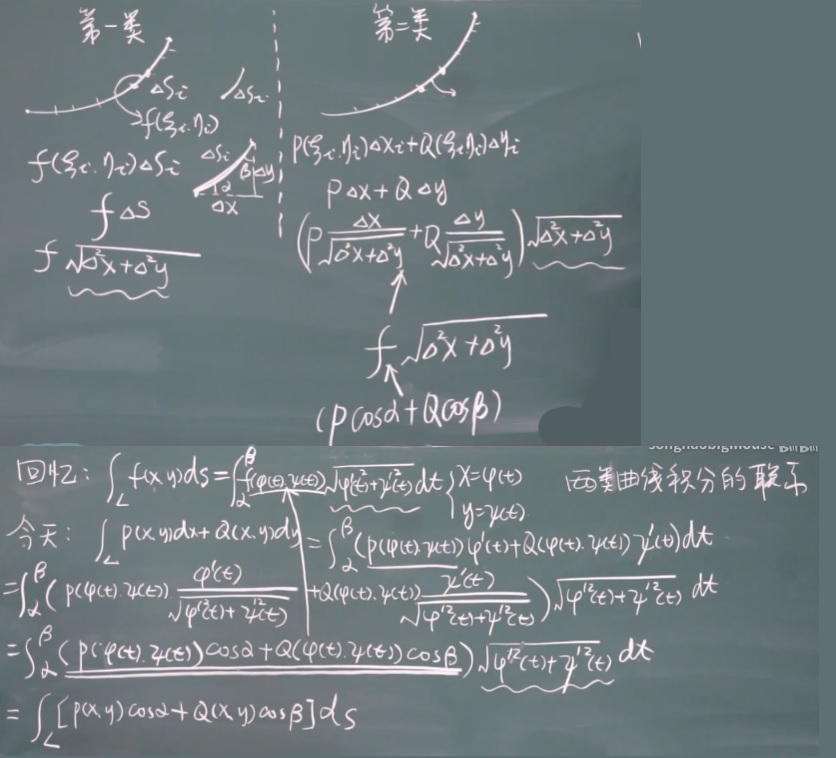 第一类
ΔSi ΔSi
f(ξi,ηi)
f(ξi,ηi)ΔSi ΔSi β Δy
α
Δx
fΔS
f√(Δ²x+Δ²y)
第二类
P(ξi,ηi)Δxi+Q(ξi,ηi)Δyi
PΔx+QΔy
(P Δx/√(Δ²x+Δ²y) + Q Δy/√(Δ²x+Δ²y))√(Δ²x+Δ²y)
f√(Δ²x+Δ²y)
(Pcosα+Qcosβ)
回忆: ∫_L f(x,y)ds=∫_α^β f(φ(t),ψ(t))√(φ'²(t)+ψ'²(t))dt {x=φ(t) y=ψ(t) 两类曲线积分的联系
今天: ∫_L P(x,y)dx+Q(x,y)dy=∫_α^β(P(φ(t),ψ(t))φ'(t)+Q(φ(t),ψ(t))ψ'(t))dt
=∫_α^β(P(φ(t),ψ(t)) φ'(t)/√(φ'²(t)+ψ'²(t)) +Q(φ(t),ψ(t)) ψ'(t)/√(φ'²(t)+ψ'²(t)))√(φ'²(t)+ψ'²(t)) dt
=∫_α^β(P(φ(t),ψ(t))cosα+Q(φ(t),ψ(t))cosβ)√(φ'²(t)+ψ'²(t)) dt
=∫_L[P(x,y)cosα+Q(x,y)cosβ]ds